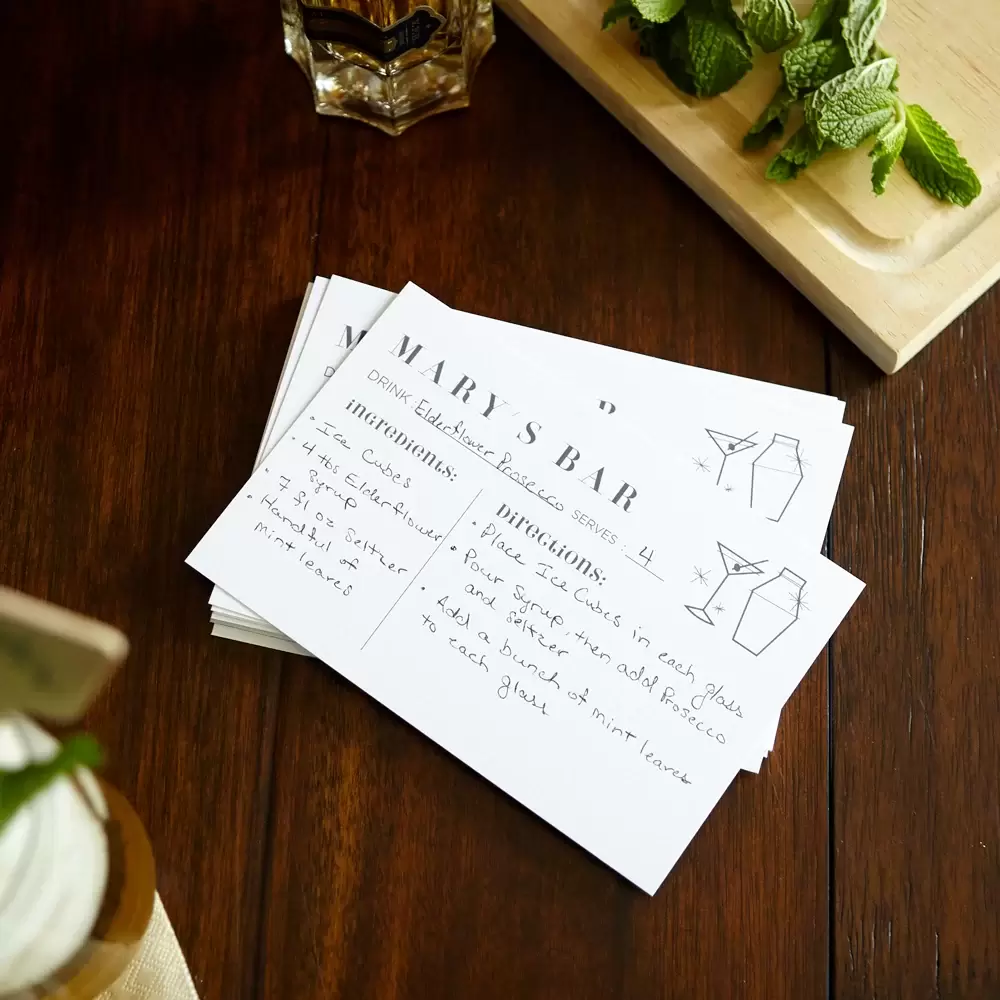 MARY'S BAR
DRINK: Elderflower Prosecco SERVES: 4
ingredients:
• Ice Cubes
• 4 tbs Elderflower
Syrup
• 7 fl oz Seltzer
• Handful of
mint leaves
Directions:
• Place Ice Cubes in each glass
• Pour Syrup, then add Prosecco
and Seltzer
• Add a bunch of mint leaves
to each
glass
M
D